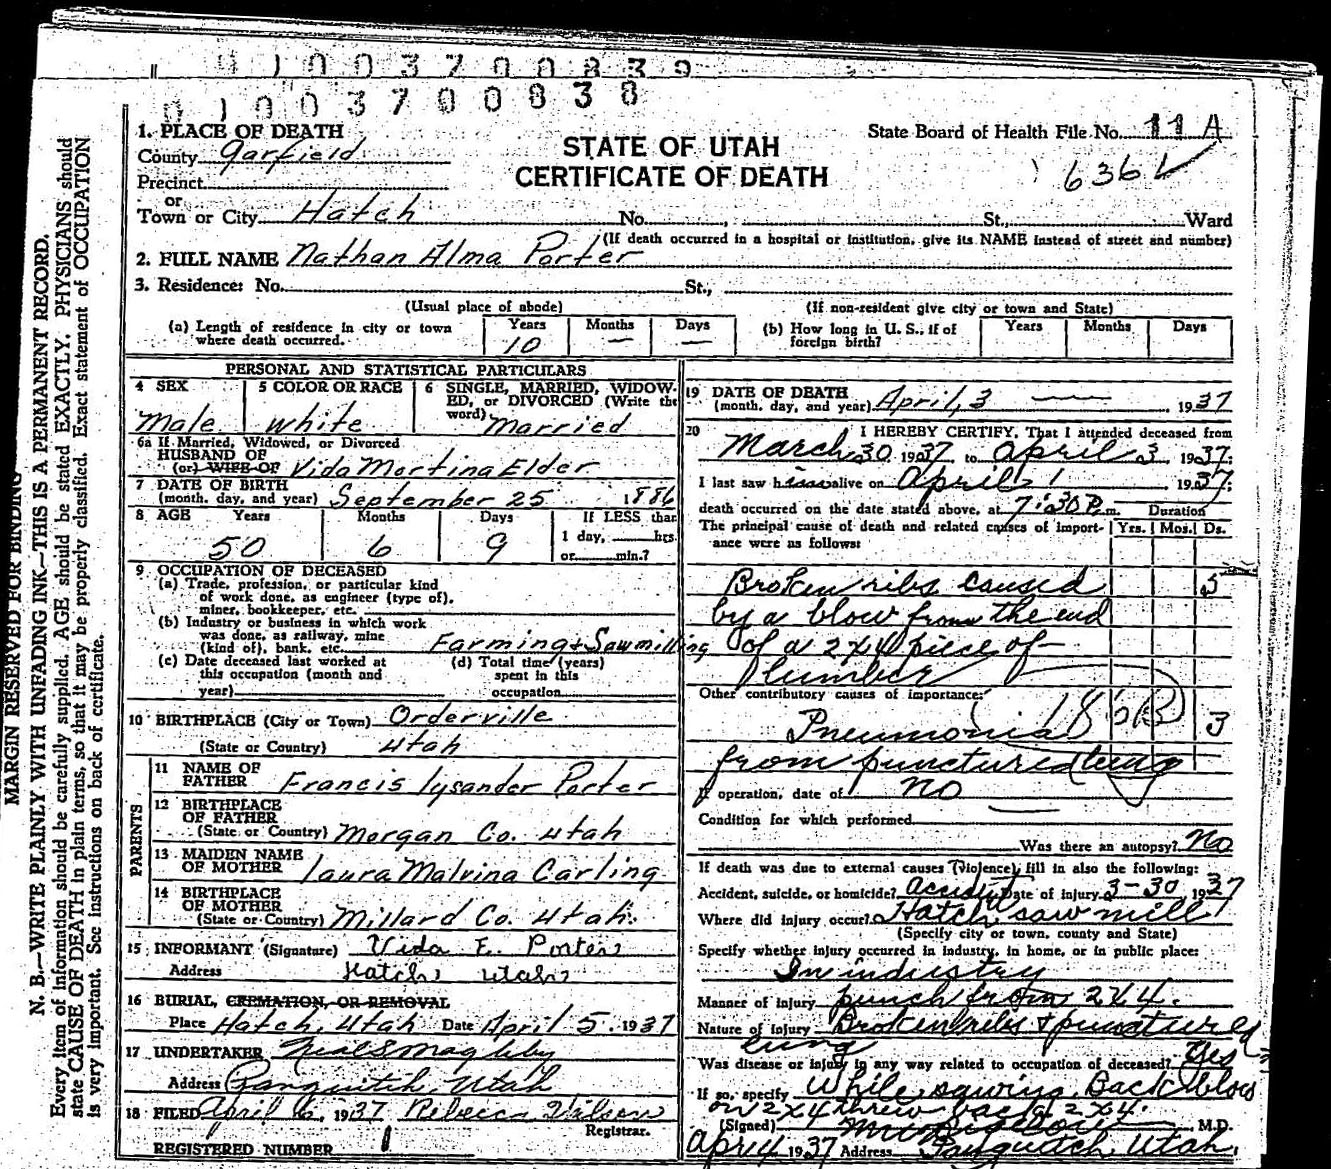 0 1 0 0 3 7 0 0 8 3 9
0 1 0 0 3 7 0 0 8 3 8
MARGIN RESERVED FOR BINDING
N. B.—WRITE PLAINLY WITH UNFADING INK—THIS IS A PERMANENT RECORD.
Every item of information should be carefully supplied. AGE should be stated EXACTLY. PHYSICIANS should
state CAUSE OF DEATH in plain terms, so that it may be properly classified. Exact statement of OCCUPATION
is very important. See instructions on back of certificate.
STATE OF UTAH
CERTIFICATE OF DEATH
State Board of Health File No. 11 A
636
1. PLACE OF DEATH
County Garfield
Precinct
or
Town or City Hatch No. St., Ward
(If death occurred in a hospital or institution, give its NAME instead of street and number)
2. FULL NAME Nathan Alma Porter
3. Residence: No. St.,
(Usual place of abode) (If non-resident give city or town and State)
(a) Length of residence in city or town where death occurred. Years 10 Months — Days —
(b) How long in U. S., if of foreign birth? Years Months Days
PERSONAL AND STATISTICAL PARTICULARS
4 SEX Male
5 COLOR OR RACE white
6 SINGLE, MARRIED, WIDOWED, or DIVORCED (Write the word) Married
6a If Married, Widowed, or Divorced
HUSBAND OF
(or) WIFE OF Vida Martina Elder
7 DATE OF BIRTH
(month, day, and year) September 25 1886
8 AGE Years 50 Months 6 Days 9 If LESS than
1 day, hrs.
or min.?
9 OCCUPATION OF DECEASED
(a) Trade, profession, or particular kind
of work done, as engineer (type of),
miner, bookkeeper, etc.
(b) Industry or business in which work
was done, as railway, mine
(kind of), bank, etc. Farming & Sawmilling
(c) Date deceased last worked at
this occupation (month and
year)
(d) Total time (years)
spent in this
occupation
10 BIRTHPLACE (City or Town) Orderville
(State or Country) Utah
PARENTS
11 NAME OF
FATHER Francis Lysander Porter
12 BIRTHPLACE
OF FATHER
(State or Country) Morgan Co. Utah
13 MAIDEN NAME
OF MOTHER Laura Malvina Carling
14 BIRTHPLACE
OF MOTHER
(State or Country) Millard Co. Utah.
15 INFORMANT (Signature) Vida E. Porter
Address Hatch Utah
16 BURIAL, CREMATION, OR REMOVAL
Place Hatch, Utah Date April 5, 1937
17 UNDERTAKER Neal S Magleby
Address Panguitch, Utah
18 FILED April 6, 1937 Rebecca Wilson
Registrar.
REGISTERED NUMBER 1
19 DATE OF DEATH
(month, day, and year) April, 3 — 1937
20 I HEREBY CERTIFY, That I attended deceased from
March 30, 1937, to April 3 1937;
I last saw him alive on April 1 1937;
death occurred on the date stated above, at 7:30 P.m. Duration
The principal cause of death and related causes of importance were as follows: Yrs. Mos. Ds.
Broken ribs caused 5
by a blow from the end
of a 2x4 piece of
lumber
Other contributory causes of importance:
Pneumonia 3
from punctured lung
If operation, date of no
Condition for which performed
Was there an autopsy? No
If death was due to external causes (Violence) fill in also the following:
Accident, suicide, or homicide? accident Date of injury 3-30 1937
Where did injury occur? Hatch saw mill
(Specify city or town, county and State)
Specify whether injury occurred in industry, in home, or in public place:
In industry
Manner of injury punch from 2x4.
Nature of injury Broken ribs & punctured
lung
Was disease or injury in any way related to occupation of deceased? Yes
If so, specify While sawing. Back blow
on 2x4 threw back a 2x4.
(Signed) M.D.
Apr 4 1937 Address Panguitch, Utah.